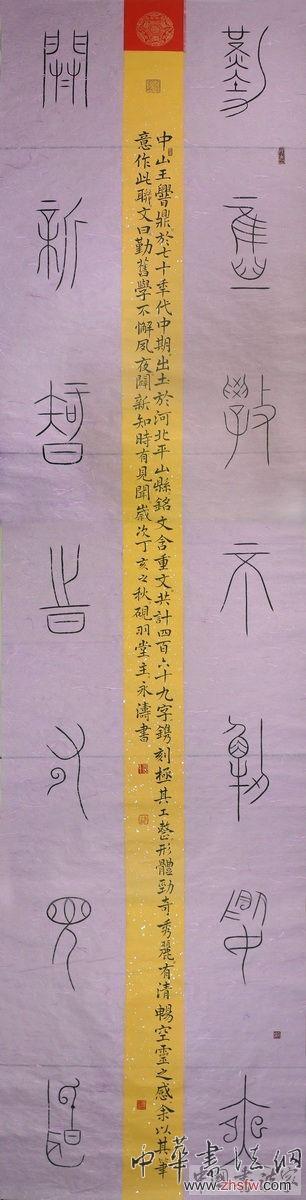 勤舊學不懈夙夜
中山王譽鼎於七十秊代中期出土於河北平山縣銘文含重文共計四百六十九字鎸刻極其工整形體勁奇秀麗有清暢空靈之感余以其筆
意作此聯文曰勤舊學不懈夙夜闢新知時有見聞歲次丁亥之秋硯羽堂主永濤書
闢新知時有見聞
中華書法網
www.zhsfw.com